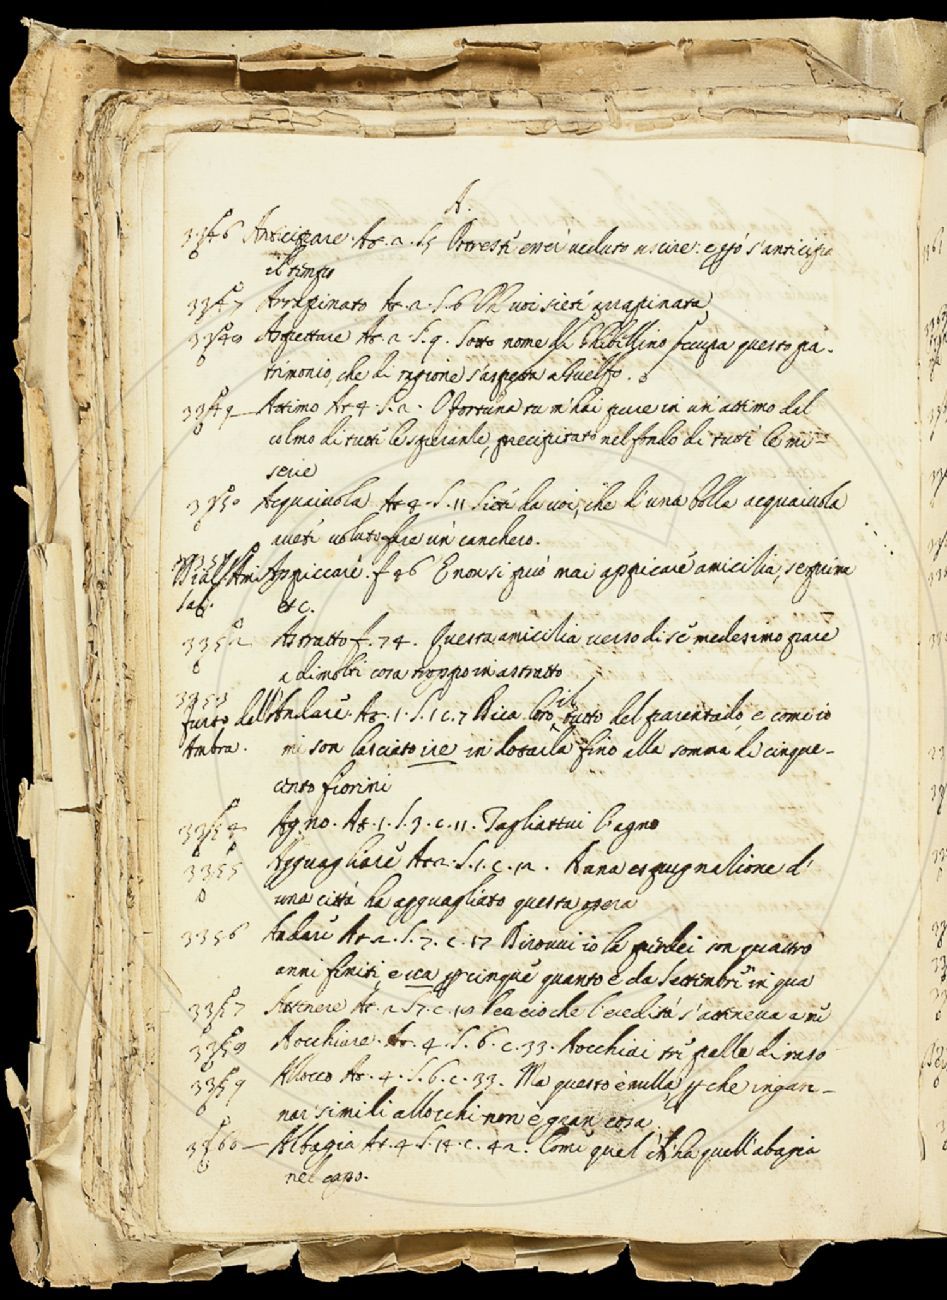 A.
3346 Anticipare. At. 2. S. 5 Potresti averci veduto uscire: e però s'anticipa
il tempo
3347 Arrapinato At. 2. S. 6 voi sieti arrapinata
3348 Aspettare At. 2. S. 9. Sotto nome di Ghibellino occupa questo pa-
trimonio, che di ragione s'aspetta a Guelfo.
3349 Attimo At. 4. S. 2. O fortuna tu m'hai pure in un'attimo dal
colmo di tutti le speranze, precipitato nel fondo di tutti le mi-
serie
3350 Acquaiuola At. 4. S. 11 Sieti da voi, che d'una bolla acquaiuola
aveti voluto fare un canchero.
3351 Appiccare. f. 26 E non si può mai appicare amicizia, se prima
etc.
3352 Astratto f. 74. Questa amicizia verso di sé medesimo pare
a di molti cosa troppo in astratto
3353
Furto dell' Andare. At. 1. S. 1 c. 7 Dica loro il tutto del parentado, e come io
Ambra. mi son lasciato ire in dotarla fino alla somma di cinque-
cento fiorini
3354 Agno. At. 1. S. 3. c. 11. Tagliattui l'agno
3355 Agguagliare At. 2. S. 1. c. 12. Hanna espugnazione di
una città ha agguagliato questa opera
3356 Andare At. 2. S. 7. c. 17 io la perdei son quattro
anni finiti, e va per cinque quanto è da Settembre in qua
3357 Attenere At. 2 S. 7. c. perciò che l'eredità s'atteneva a mi
3358 Aocchiare. At. 4. S. 6. c. 33. Aocchiai tri palle di raso
3359 Alloccho At. 4. S. 6. c. 33. Ma questo è nulla, perche ingan-
nar simili allocchi non è gran cosa
3360 Albagia At. 4 S. 14. c. 42. Come quel ch'ha quell'abagia
nel capo.